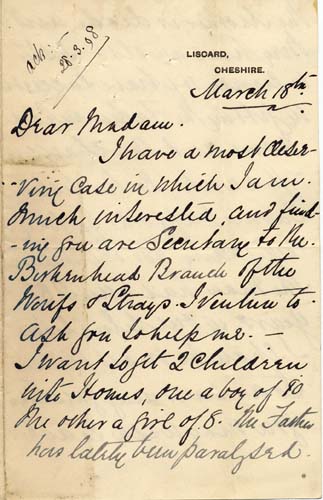 ack
28.3.98
LISCARD,
CHESHIRE.
March 18th
Dear Madam.
I have a most deser-
-ving case in which I am
much interested, and find-
-ing you are Secretary to the
Birkenhead Branch of the
Waifs & Strays. I venture to
ask you to help me. -
I want to get 2 children
into Homes, one a boy of 10
the other a girl of 8. The Father
has lately been paralysed.